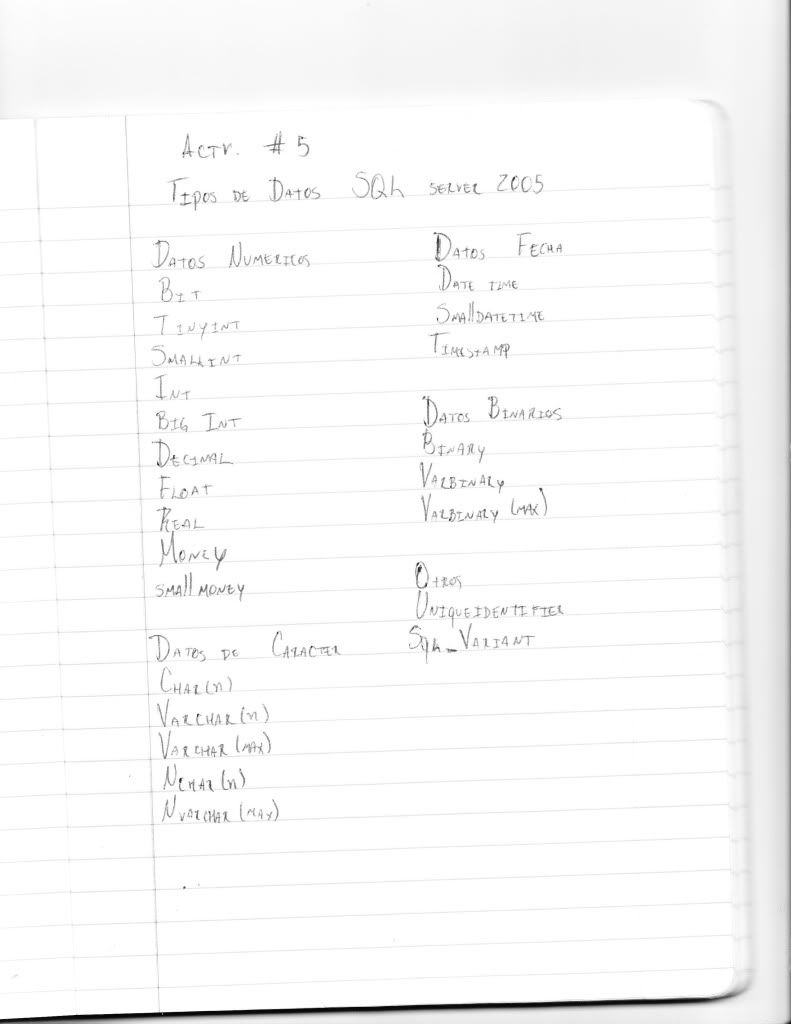 Actv. #5
Tipos de Datos SQL server 2005
Datos Numericos
Bit
Tinyint
Smallint
Int
Big Int
Decimal
Float
Real
Money
smallmoney
Datos de Caracter
Char(n)
Varchar(n)
Varchar(max)
Nchar(n)
Nvarchar(max)
Datos Fecha
Date time
Smalldatetime
Timestamp
Datos Binarios
Binary
Varbinary
Varbinary(max)
Otros
Uniqueidentifier
Sql_Variant